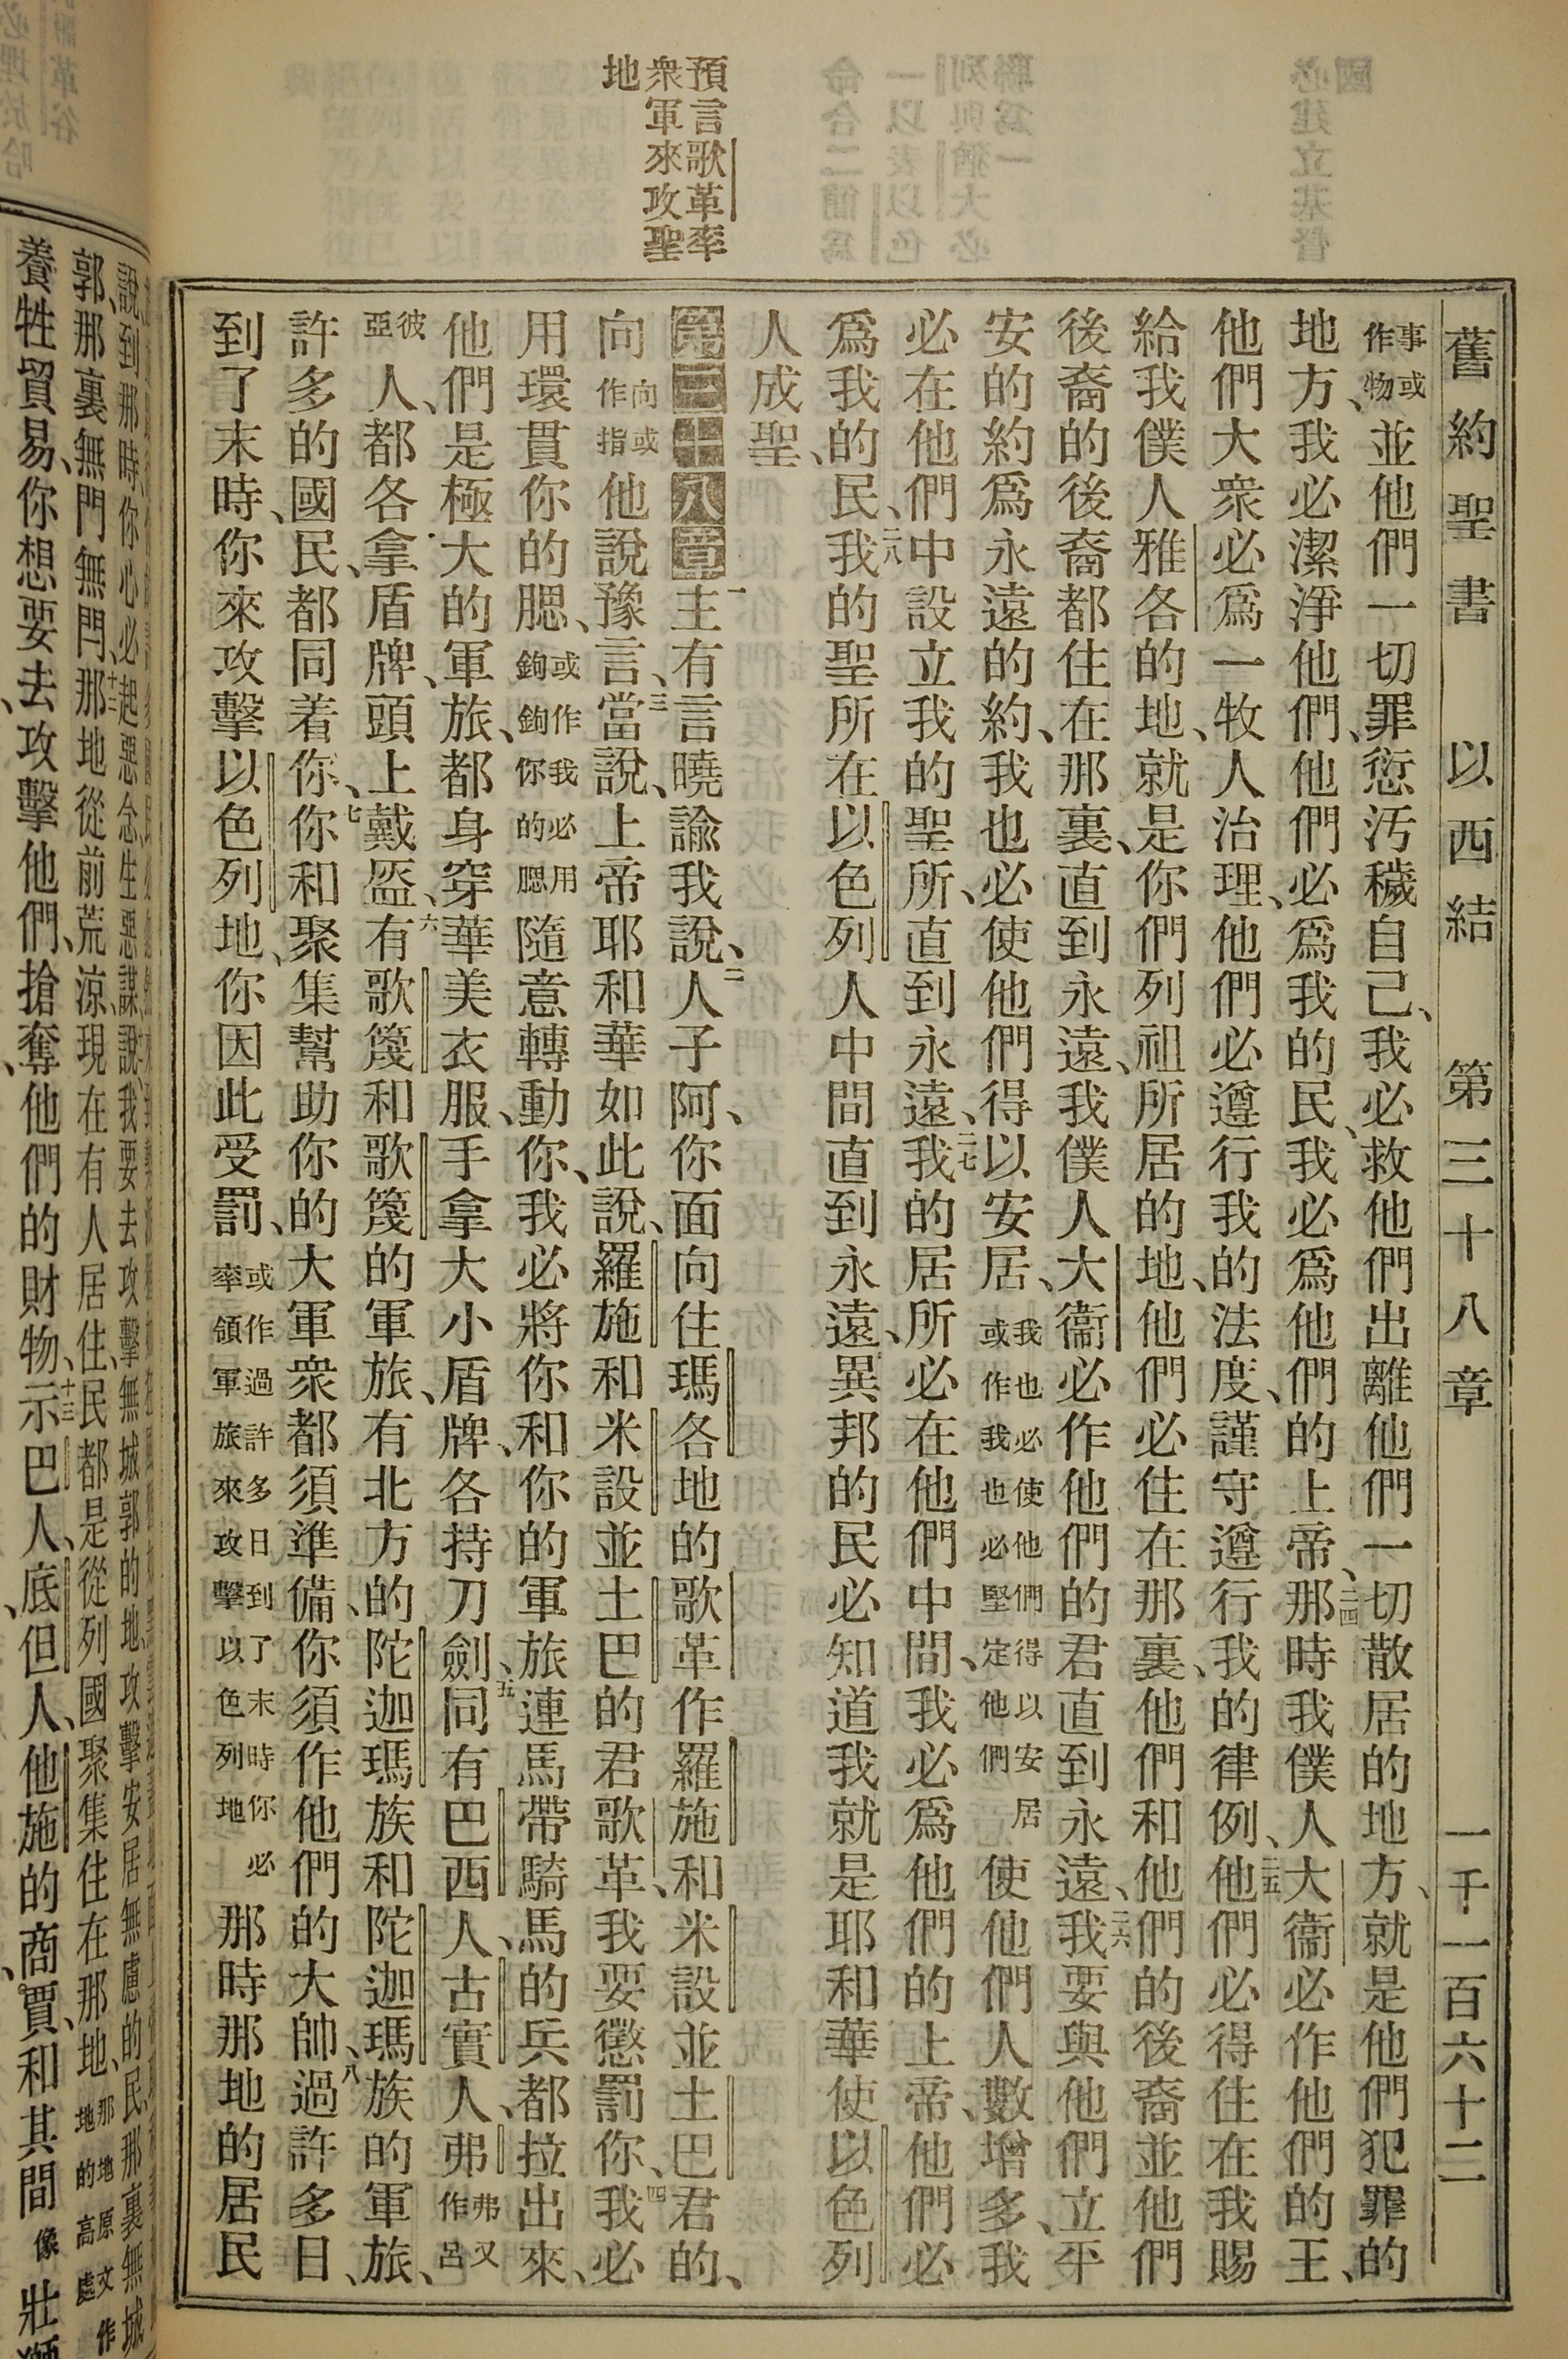 舊約聖書 以西結 第三十八章 一千一百六十二
預言歌革率
衆軍來攻聖
地
事或作物並他們一切罪愆汚穢自己、我必救他們出離他們一切散居的地方、就是他們犯罪的
地方、我必潔淨他們、他們必爲我的民、我必爲他們的上帝、二四那時我僕人大衞必作他們的王、
他們大衆必爲一牧人治理、他們必遵行我的法度、謹守遵行我的律例、二五他們必得住在我賜
給我僕人雅各的地、就是你們列祖所居的地、他們必住在那裏、他們和他們的後裔並他們
後裔的後裔都住在那裏、直到永遠、我僕人大衞必作他們的君直到永遠、二六我要與他們立平
安的約爲永遠的約、我也必使他們得以安居、我也必使他們得以安居或作我也必堅定他們使他們人數增多、我
必在他們中設立我的聖所、直到永遠、二七我的居所必在他們中間、我必爲他們的上帝、他們必
爲我的民、二八我的聖所在以色列人中間直到永遠、異邦的民必知道我就是耶和華使以色列
人成聖、
第三十八章一主有言曉諭我說、二人子阿、你面向住瑪各地的歌革作羅施和米設並土巴君的、
向向或作指他說豫言、三當說、上帝耶和華如此說、羅施和米設並土巴的君歌革、我要懲罰你、四我必
用環貫你的腮、或作我必用鉤鉤你的腮隨意轉動你、我必將你和你的軍旅連馬帶騎馬的兵都拉出來、
他們是極大的軍旅、都身穿華美衣服、手拿大小盾牌、各持刀劍、五同有巴西人、古實人、弗弗又作呂
彼亞人、都各拿盾牌、頭上戴盔、六有歌篾和歌篾的軍旅、有北方的陀迦瑪族和陀迦瑪族的軍旅、
許多的國民、都同着你、七你和聚集幫助你的大軍衆都須準備、你須作他們的大帥、八過許多日、
到了末時、你來攻擊以色列地、你因此受罰、或作過許多日到了末時你必率領軍旅來攻擊以色列地那時那地的居民
說、到那時、你心必起惡念、生惡謀、說、我要去攻擊無城郭的地、攻擊安居無慮的民、那裏無城
郭、那裏無門無閂、十二那地從前荒涼、現在有人居住、民都是從列國聚集住在那地、那地原文作地的高處
養牲貿易、你想要去攻擊他們、搶奪他們的財物、十三示巴人、底但人、他施的商賈、和其間像壯獅